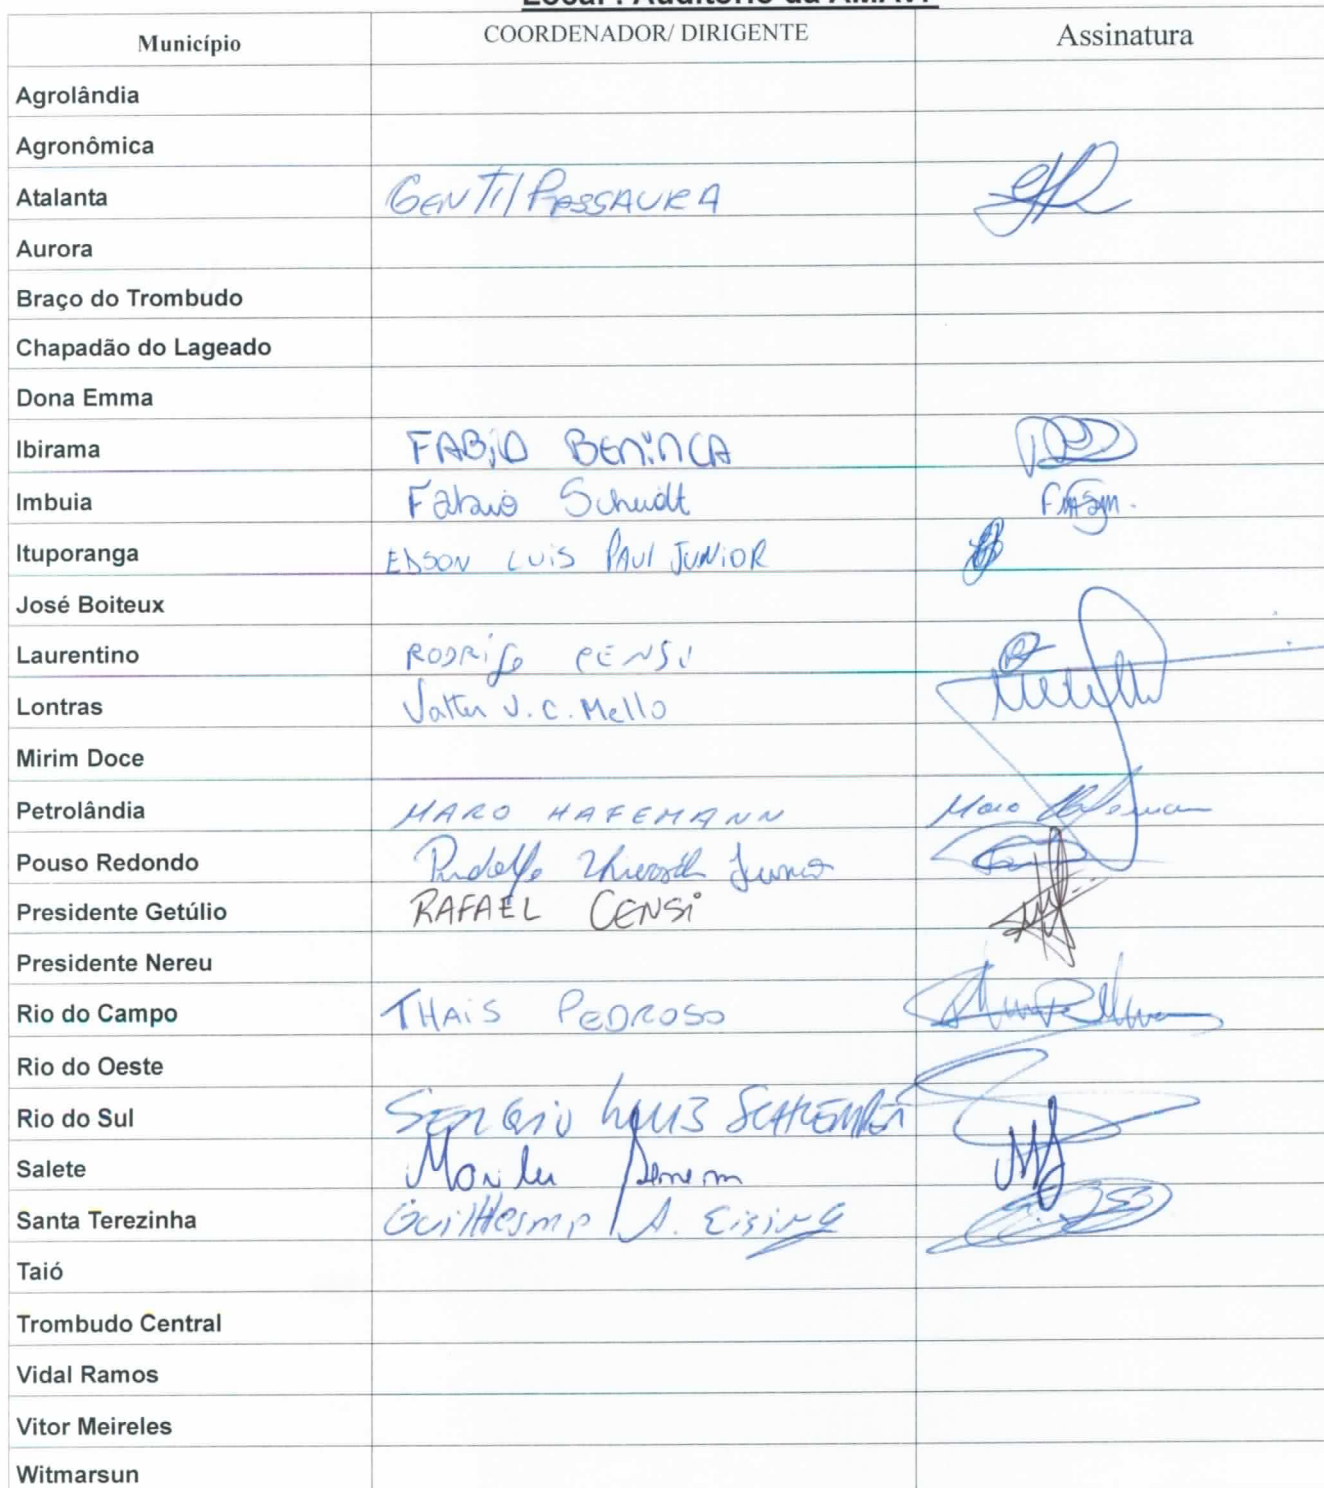 Local : Auditório da AMAVI
Município COORDENADOR/ DIRIGENTE Assinatura
Agrolândia
Agronômica
Atalanta GENTIl PESSAURA
Aurora
Braço do Trombudo
Chapadão do Lageado
Dona Emma
Ibirama FABiO BENiNCA
Imbuia Fabio Schmidt
Ituporanga EDSON LUiS PAUl JUNiOR
José Boiteux
Laurentino RODRiGo CENSi
Lontras Valter J. C. Mello
Mirim Doce
Petrolândia MARO HAFEMANN Maro Hafemann
Pouso Redondo Junior
Presidente Getúlio RAFAEL CENSi
Presidente Nereu
Rio do Campo THAiS PEDROSO
Rio do Oeste
Rio do Sul SERGiO LUIZ
Salete
Santa Terezinha GuilHermp A. EisinG
Taió
Trombudo Central
Vidal Ramos
Vitor Meireles
Witmarsun